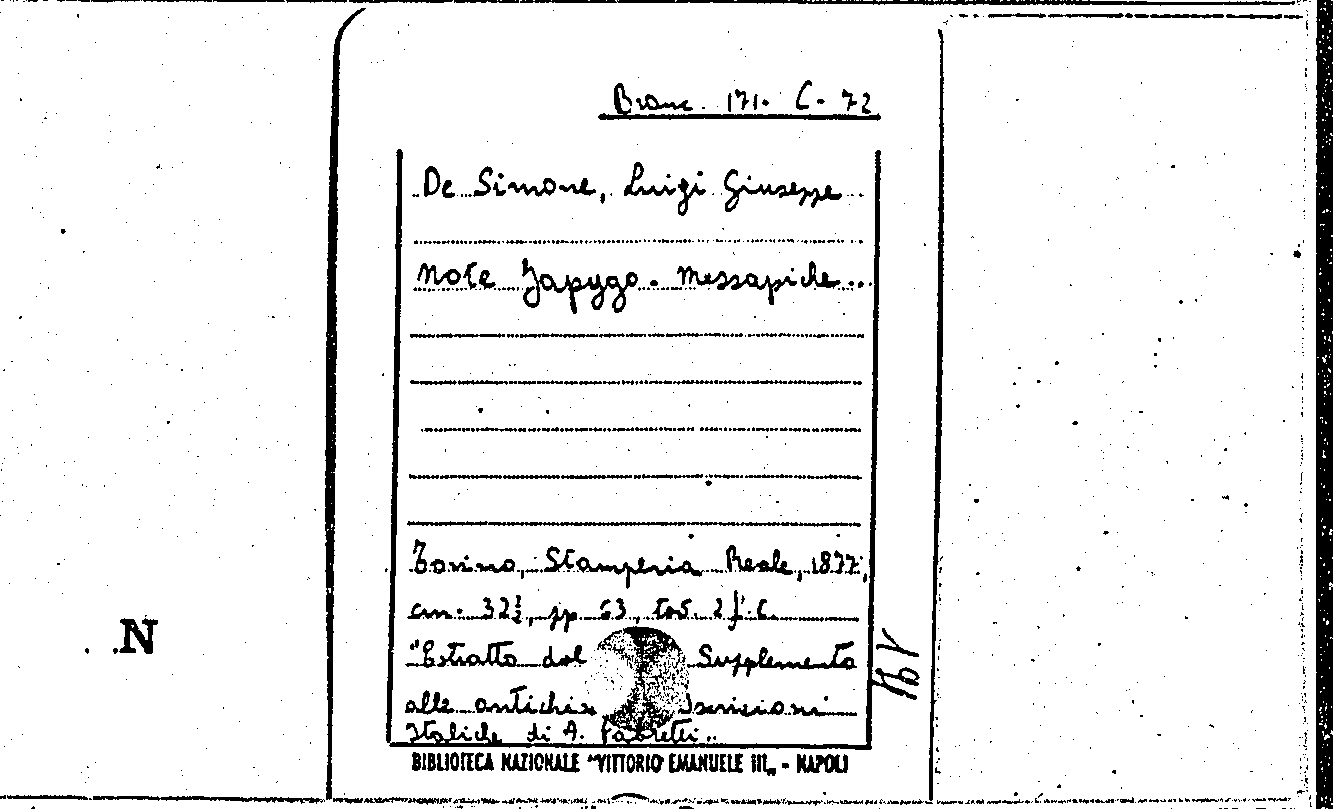 Branc. 171. C. 72
De Simone, Luigi Giuseppe
Note Japygo-Messapiche..
Torino, Stamperia Reale, 1877,
cm. 32½, pp 63, tav. 2 f.t.
"Estratto dal Supplemento
alle antichi Iscrizioni
Italiche di A. Fabretti..
BIBLIOTECA NAZIONALE "VITTORIO EMANUELE III„ - NAPOLI
N